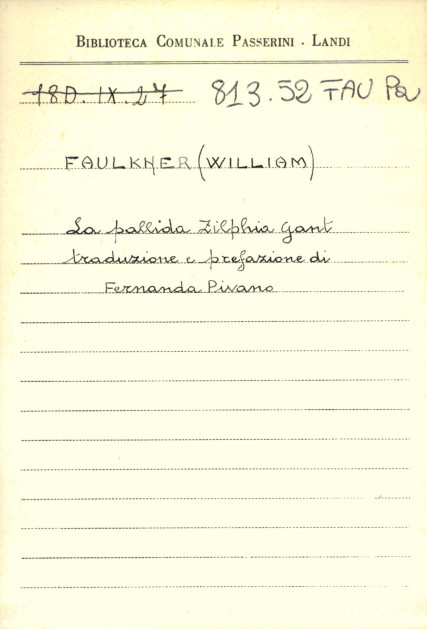 BIBLIOTECA COMUNALE PASSERINI - LANDI
18D. IX. 27 813.52 FAU Pa
FAULKNER (WILLIAM)
La pallida Zilphia Gant
traduzione e prefazione di
Fernanda Pivano